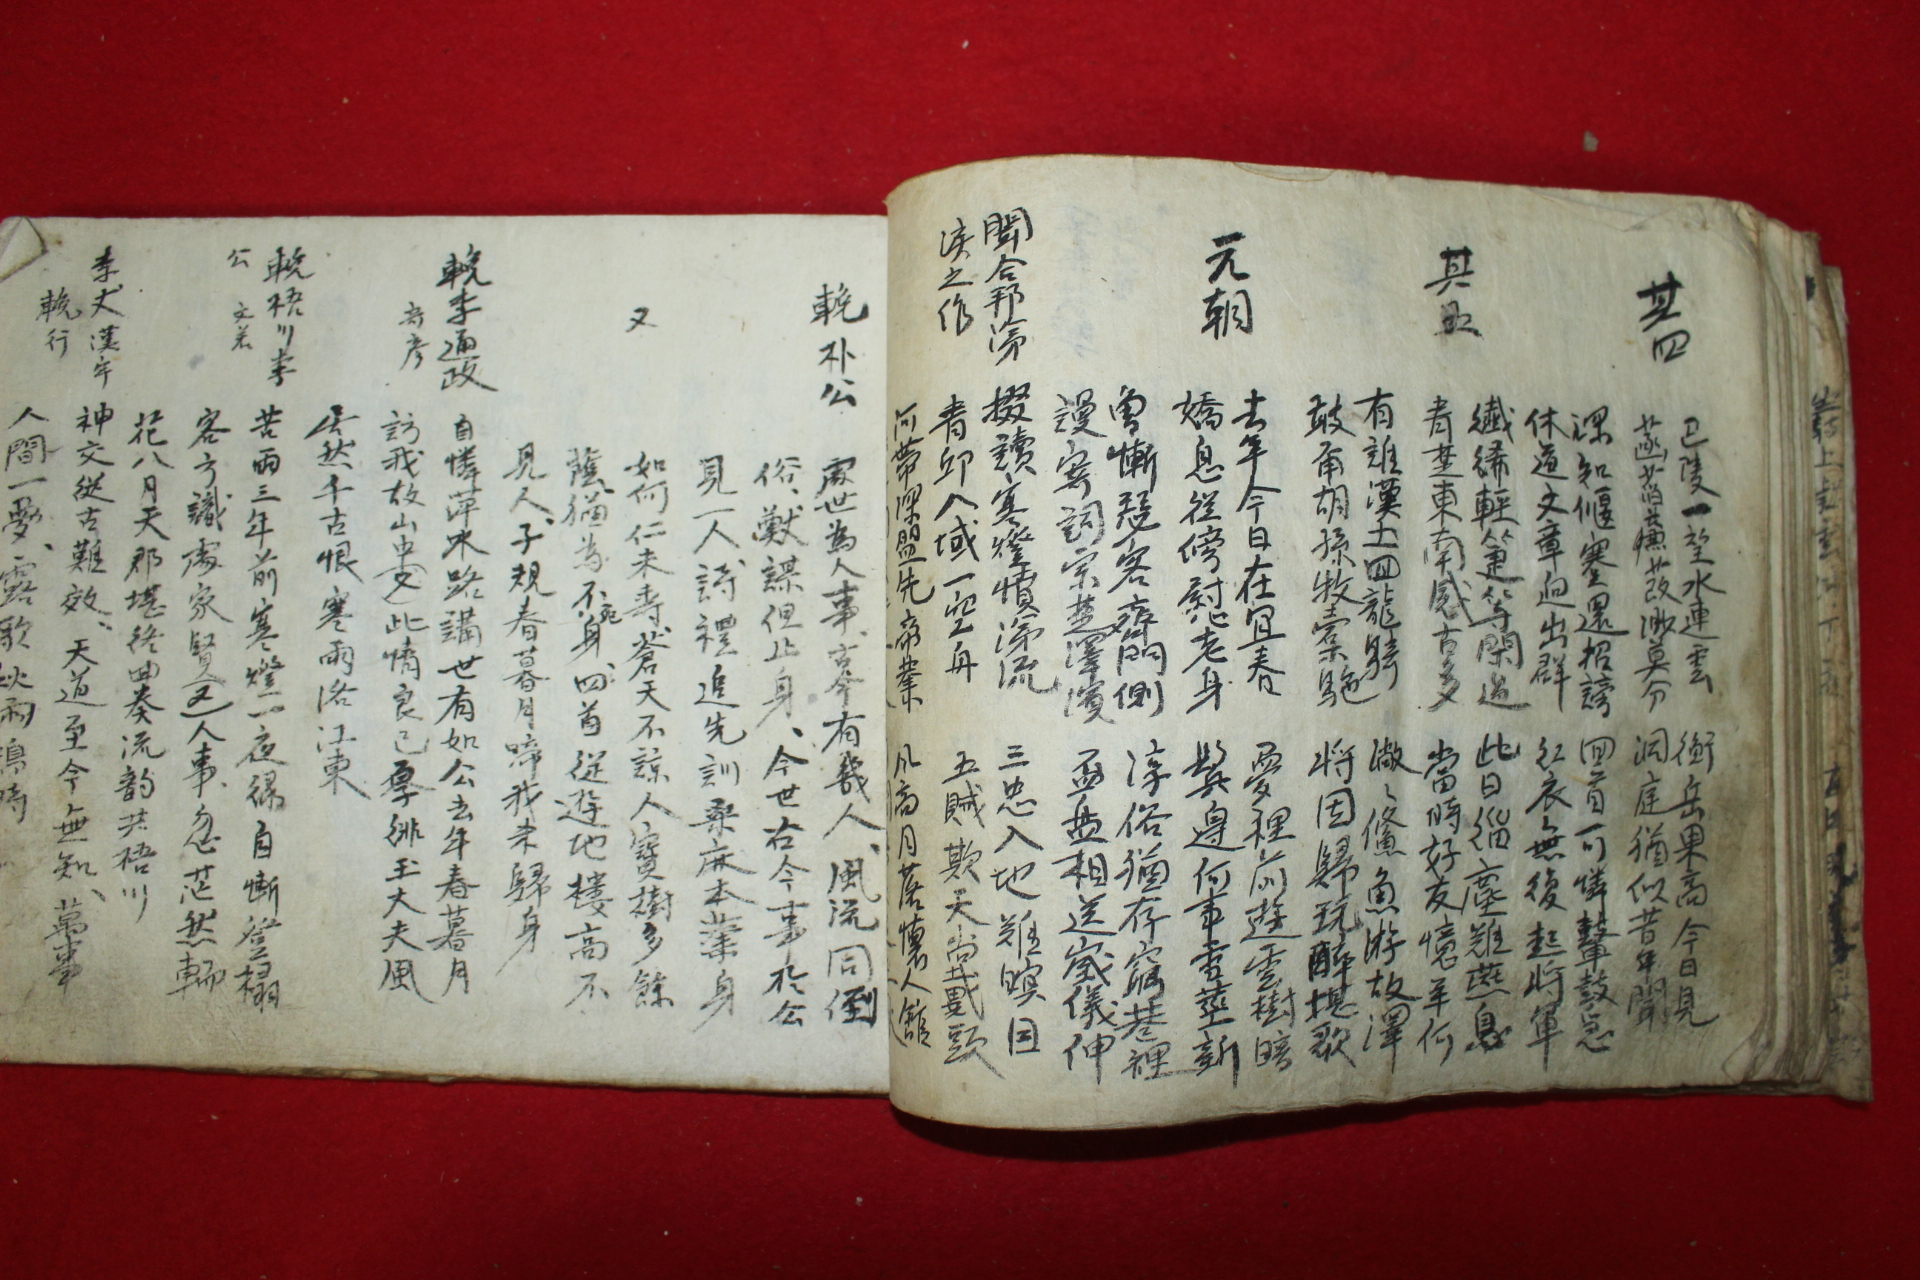 其四
巴陵一望水連雲 衡岳果高今日見
洞庭猶似昔年聞
深知偃蹇還招謗 四首可憐鼙鼓急
休道文章迥出群 紅衣無後起將軍
其五
纖絺輕箑等閑過 此日緇塵難燕息
青楚東南感古多 當時好友憶羊何
有誰漢土四龍騎 潎潎鯈魚游故澤
敢甬胡孫牧橐駝 將因歸翫醉堪歌
元朝
去年今日在宜春 夢裡前遊雲樹暗
嬌息從傍慰老身 鬓邊何事雪莖新
曾慚瑟客齊門側 淳俗猶存窮巷裡
謾寄詞宗楚澤濱 盃盘相送歲儀伸
聞合邦涕
淚之作
掇讀寒燈憤涕流 三忠入地難瞑目
青邱八域一空舟 五賊欺天尚戴頭
何帶深盟先帝業 凡高月落懷人館
輓朴公
處世為人事、古今有幾人、風流同倒
俗、猷謀但止身、今世右今事於公
見一人、詩禮追先訓桑麻本業身
又
如何仁未壽、蒼天不諒人寶樹多餘
蔭、猶為不宛身四首從遊地樓高不
見人、子規春暮月啼我未歸身
輓李通政
自憐萍水路講世有如公去年春暮月
訪我故山中此情良已厚緋玉大夫風
居然千古恨寒雨洛江東
輓梧川李
公
苦雨三年前寒燈一夜緣自慚登榻
客方識處家賢又人事忽茫然輀
花八月天那堪終曲奏流韵共梧川
李丈漢
輓行
神交從古難效、天道至今無知、萬事
人間一夢、露歌秋雨